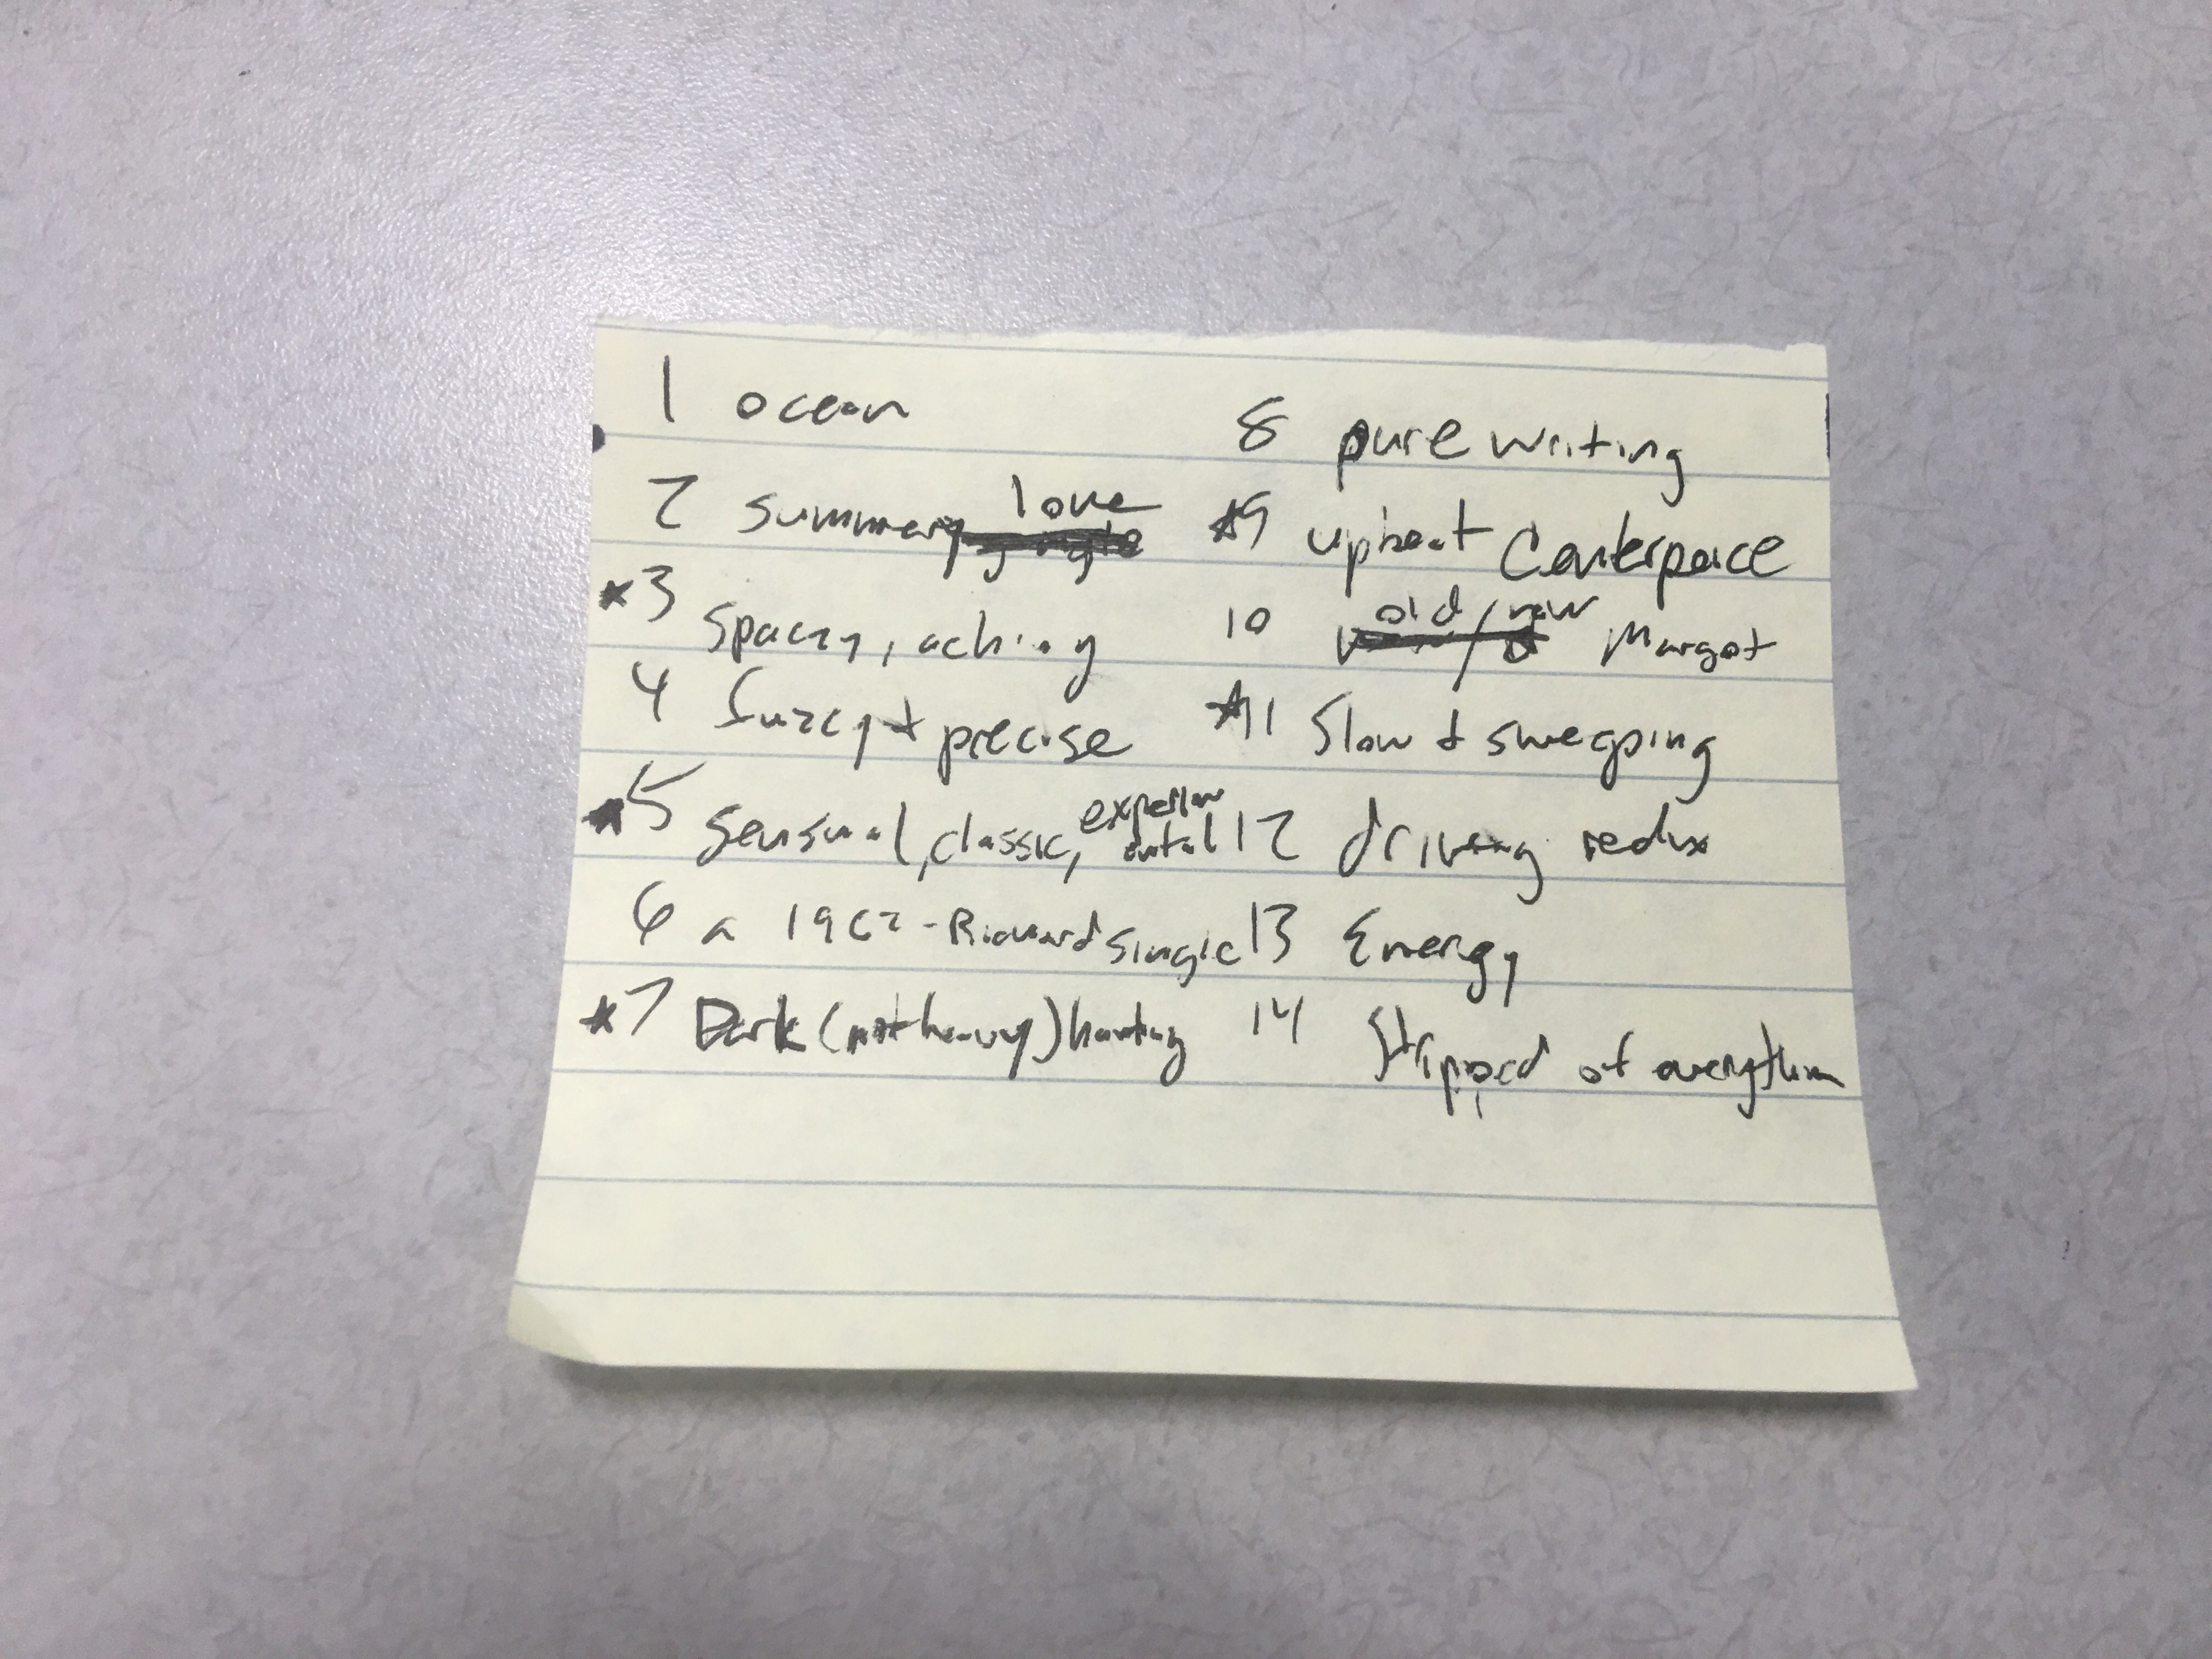 1 ocean
2 summery love
*3 spacey, aching
4 fuzzy + precise
*5 sensual, classic, experimental
6 a 1962 - Richard single
*7 Dark (not heavy) haunting
8 pure writing
*9 upbeat Centerpeice
10 old/new Margot
*11 Slow + sweeping
12 driving redux
13 Energy
14 Stripped of everything